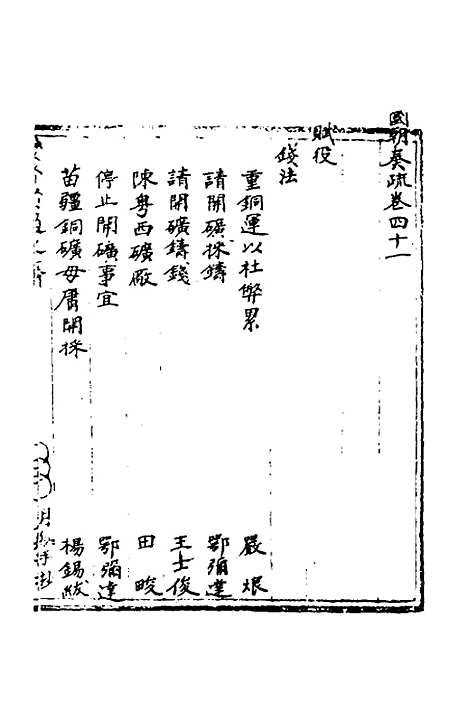 國朝奏疏卷四十一
賦役
錢法
重銅運以杜弊累 嚴烺
請開礦採鑄 鄂彌達
請開礦鑄錢 王士俊
陳粤西礦厰 田畯
停止開礦事宜 鄂彌達
苗疆銅礦毋庸開採 楊錫紱